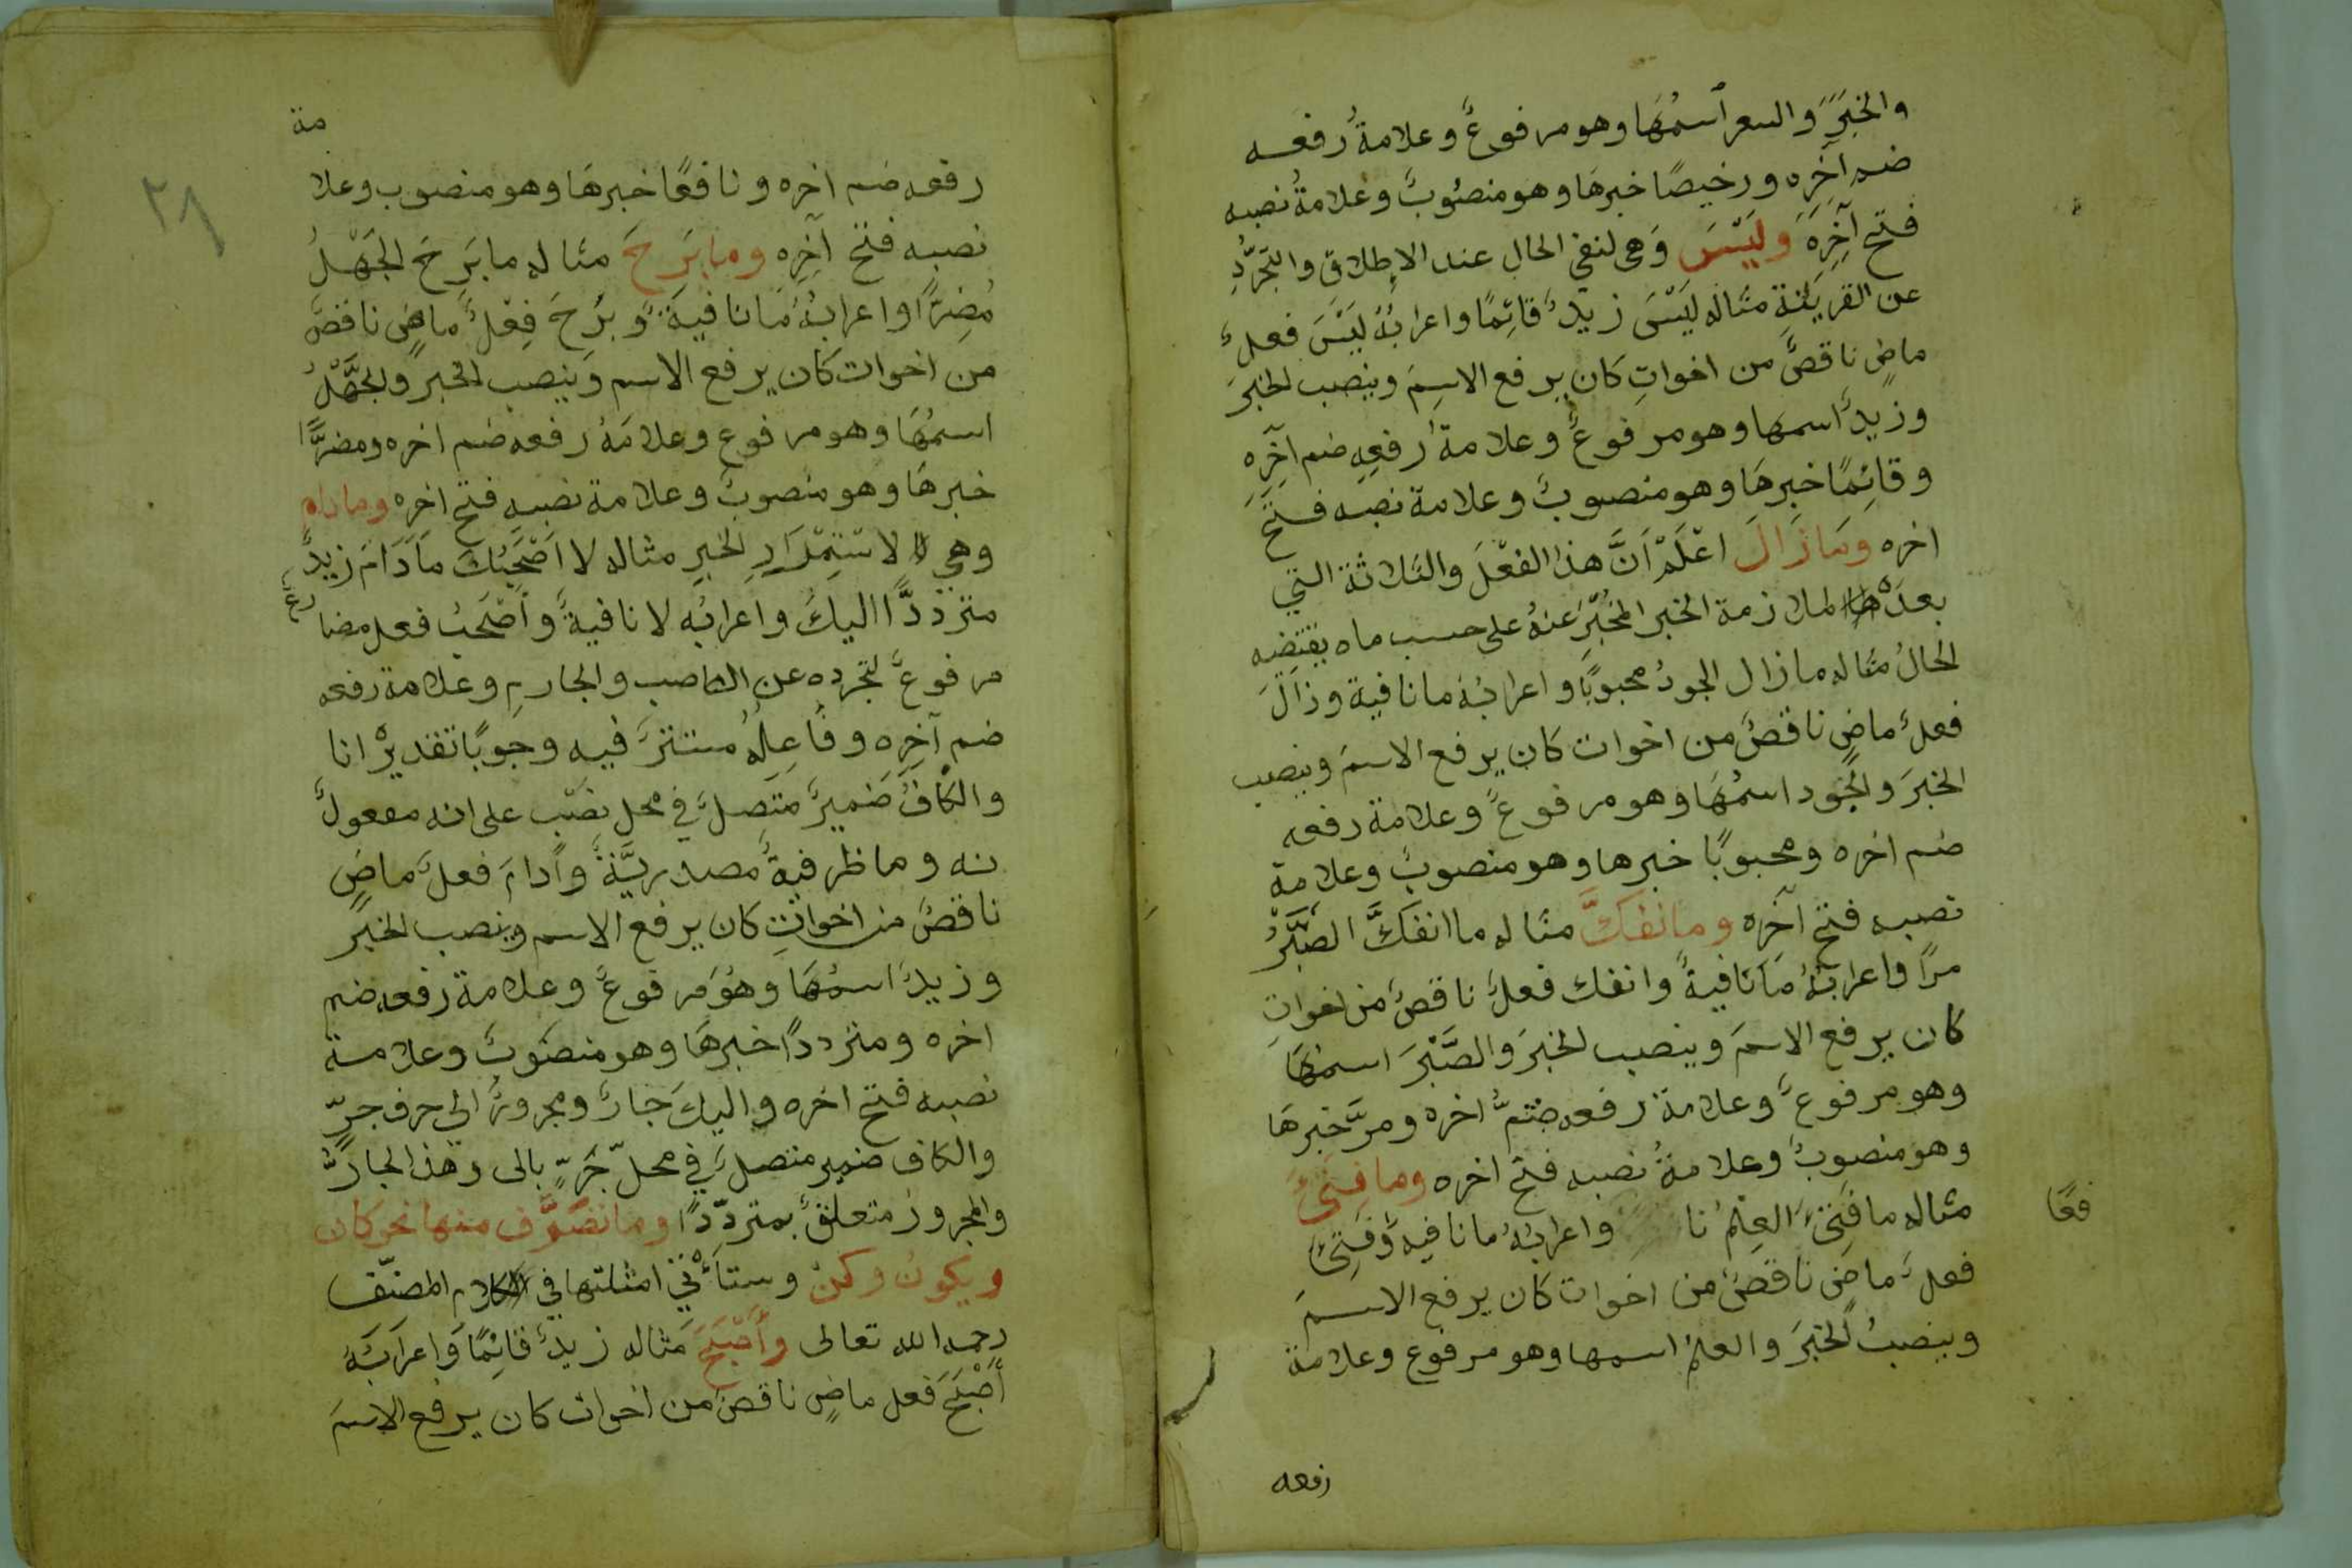 والخبَرَ والسعر اسمُهَا وهو مرفوعٌ وعلامةُ رفعه
ضم آخِرِه ورخيصًا خبرهَا وهو منصُوبٌ وعلامةُ نصبه
فتح آخِرِهَ وليْسَ وَهي لنفي الحال عند الاطلاق والتجَرُّدِ
عن القرينةِ مثاله ليْسَ زيدٌ قائِمًا واعرابُهُ ليْسَ فعلٌ
ماضٍ ناقصٌ من اخواتِ كان يرفع الاسِمَ وينصب الخبرَ
وزيدٌ اسمها وهو مرفوعٌ وعلامةُ رفعِهِ ضم آخِرِهِ
وقائِمًا خبرهَا وهو منصوبٌ وعلامة نصبه فتح
اخره وَمَا زَالَ اعْلَمْ اَنَّ هذا الفعْلَ والثلاثة التي
بعدَهُ لملازمة الخبر المُخْبَرَ عَنهُ على حسب ما يقتضِيه
الحَالُ مثاله ما زال الجودُ محبوبًا واعرابُهُ ما نافية وزَالَ
فعلٌ ماضٍ ناقصٌ من اخوات كان يرفع الاسمَ وينصب
الخبَرَ والجُود اسمُهَا وهو مرفوعٌ وعلامة رفعه
ضم اخره ومحبوبًا خبرها وهو منصوبٌ وعلامة
نصبه فتح آخره وما نفكَّ مثاله ما انفَكَّ الصَّبْرُ
مرًا واعرابُهُ مَا نَافيةٌ وانفك فعلٌ ناقصٌ من اخواتِ
كان يرفع الاسمَ وينصب الخبَرَ والصَّبْرَ اسمُهَا
وهو مرفوعٌ وعلامة رفعه ضمُّ اخره ومرَّ خبرهَا
وهو منصوبٌ وعلامةُ نصبه فتح اخره وما فتِئَ
مثاله ما فتِئَ العِلْمُ نا واعرابُهُ ما نافيه وَفتِئَ
فعًا
فعلٌ ماضٍ ناقصٌ من اخوات كان يرفع الاسمَ
وينصبُ الخبَرَ والعلمُ اسمها وهو مرفوع وعلامة
رفعه
٢٨
مة
رفعه ضم اخره ونافعًا خبرهَا وهو منصوب وعلا
نصبه فتح آخِرِه وما بَرِحَ مثاله ما بَرِحَ الجَهْلُ
مُضِرًّا واعرابُهُ مَا نافيةٌ وبَرِحَ فِعْلٌ ماضٍ ناقصٌ
من اخوات كان يرفع الاسم وينصب الخبر والجَهْلُ
اسمُهَا وهو مرفوع وعلامَةُ رفعه ضم اخره ومضرًّا
خبرهَا وهو منصوبٌ وعلامة نصبه فتح اخره وما دام
وهي لاسْتِمْرَارِ الخبرِ مثاله لا اَصْحَبُكَ مَا دَامَ زيدٌ
مترددًّا اليكَ واعرابُه لا نافيةٌ وأصْحَبُ فعل مضارعٌ
مرفوعٌ لتجرده عن الناصب والجازمِ وعلامة رفعه
ضم آخِرِه وفَاعِلُهُ مستترٌ فيه وجوبًا تقديرْ انا
والكَافُ ضَميرٌ مُتَصِلٌ في محل نصْبٍ على انه مفعولٌ
به وما ظرفيةٌ مصدريَّةٌ وَأدامَ فعلٌ ماضٍ
ناقصٌ من اخواتِ كان يرفع الاسم وينصب الخبر
وزيدٌ اسمُهَا وهُو مَرفوعٌ وعلامة رفعه ضم
اخره ومترددًا خبرهَا وهو منصوبٌ وعلامة
نصبه فتح اخره واليكَ جَارٌ ومجرورٌ الى حرف جرٍّ
والكاف ضمير متصلٌ في محلّ جَرٍّ بالى وهذا الجارُّ
والمجرورُ متعلقٌ بمتردّدًا وما تصَرَّف منها نحو كان
ويكونُ وكنْ وستأتي امثلتها في كلام المصنّف
رحمه الله تعالى وأصْبَحَ مثاله زيدٌ قائِمًا وَاعرابُهُ
أصْبَحَ فعل ماضٍ ناقصٌ من اخوات كان يرفع الاسمَ